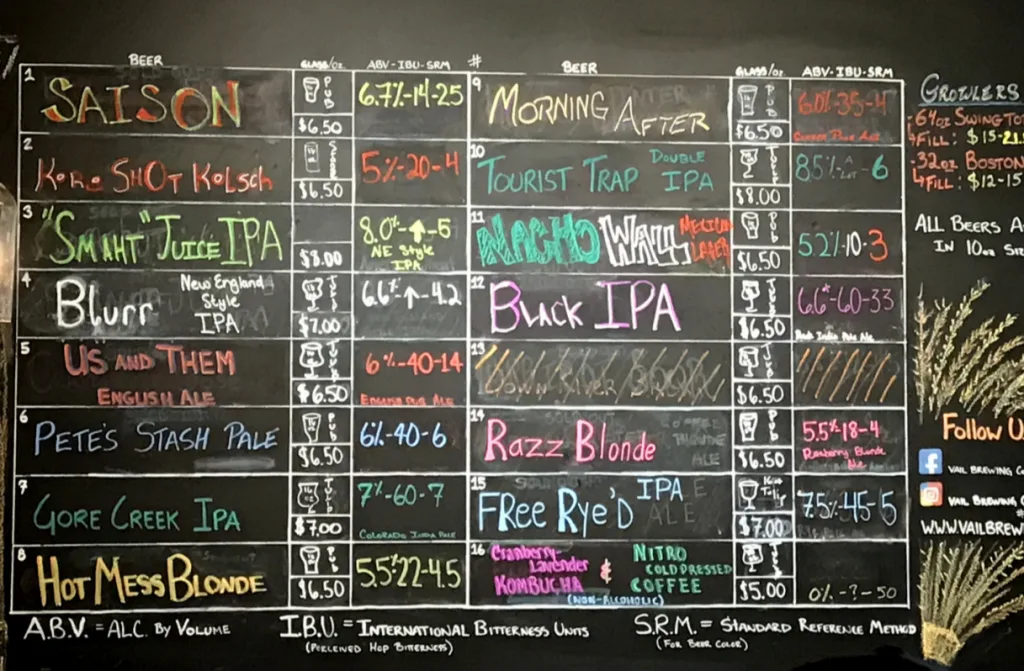 BEER GLASS/OZ. ABV-IBU-SRM # BEER GLASS/OZ. ABV-IBU-SRM
1 SAISON PUB $6.50 6.7%-14-25
2 KORE SHOT KOLSCH $6.50 5%-20-4
3 "SMAHT" JUICE IPA $8.00 8.0%-↑-5
NE Style
IPA
4 Blurr New England
Style
IPA $7.00 6.6%-↑-4.2
5 US AND THEM
ENGLISH ALE $6.50 6%-40-14
ENGLISH PUB ALE
6 PETE'S STASH PALE PUB $6.50 6%-40-6
7 GORE CREEK IPA $7.00 7%-60-7
COLORADO INDIA PALE
8 HOT MESS BLONDE PUB $6.50 5.5%22-4.5
9 MORNING AFTER PUB $6.50 6.0%-35-4
10 TOURIST TRAP DOUBLE
IPA $8.00 6
11 NACHO WALL MEDIUM
LAGER PUB $6.50 5.2%-10-3
12 BLACK IPA $6.50 6.6%-60-33
India Pale Ale
13 $6.50
14 RAZZ BLONDE PUB $6.50 5.5%-18-4
Raspberry Blonde
Ale
15 FREE RYE'D IPA $7.00 7.5%-45-5
16 CRANBERRY-
LAVENDER
KOMBUCHA & NITRO
COLD PRESSED
COFFEE
(NON-ALCOHOLIC) $5.00 0%-?-50
GROWLERS
64oz SWING TO
FILL: $15-21
-32oz BOSTON
FILL: $12-15
ALL BEERS A
IN 10oz SIZ
Follow U
VAIL BREWING CO
VAIL BREWING C
WWW.VAILBREW
A.B.V. = ALC. BY VOLUME I.B.U. = INTERNATIONAL BITTERNESS UNITS S.R.M. = STANDARD REFERENCE METHOD
(PERCEIVED HOP BITTERNESS) (FOR BEER COLOR)